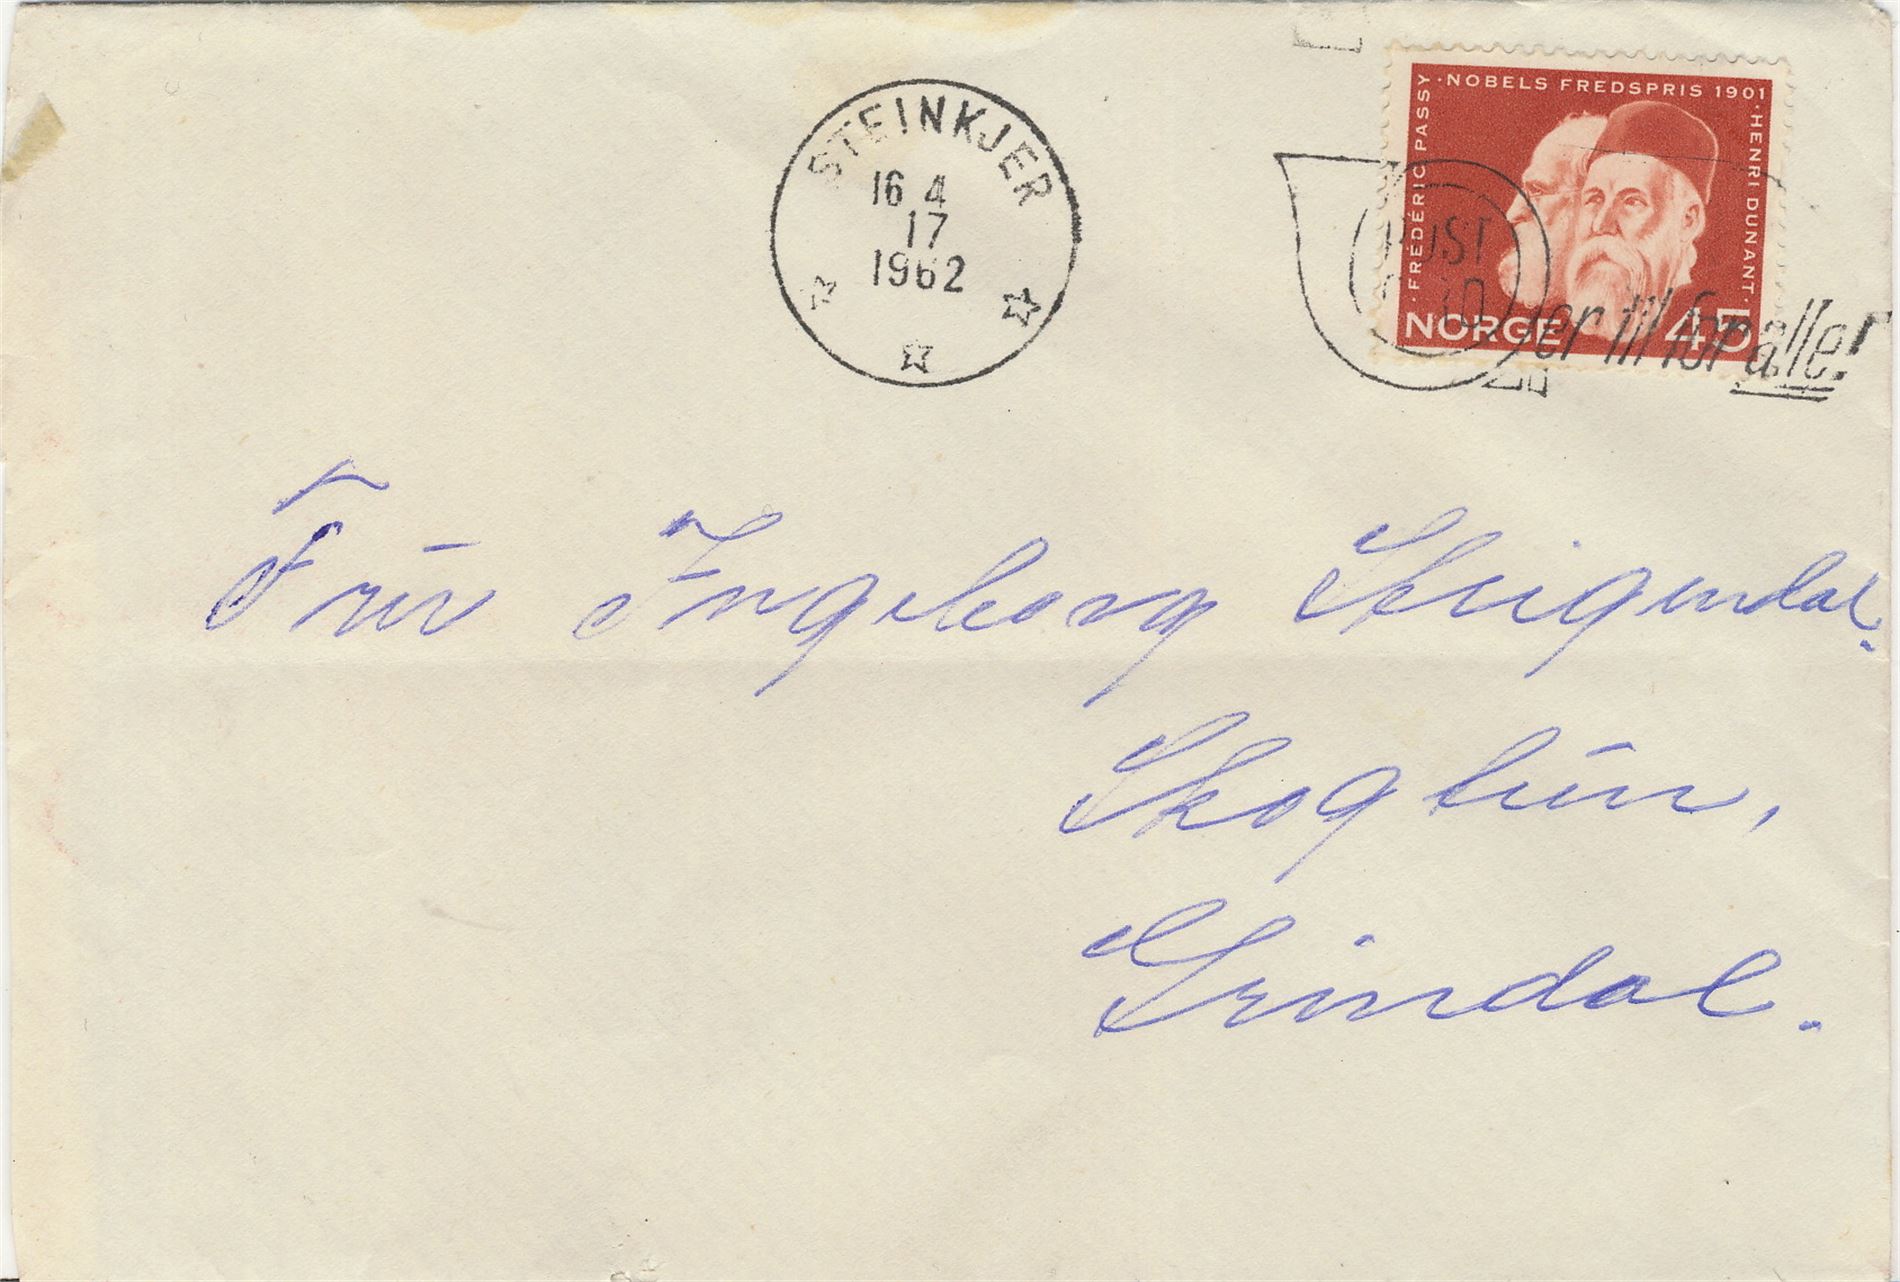 STEINKJER
16 4
17
1962
· NOBELS FREDSPRIS 1901 ·
· FRÉDÉRIC PASSY
HENRI DUNANT ·
NORGE 45
POST
er til for alle!
Frú Ingeborg
Skogtún,
Grindal.